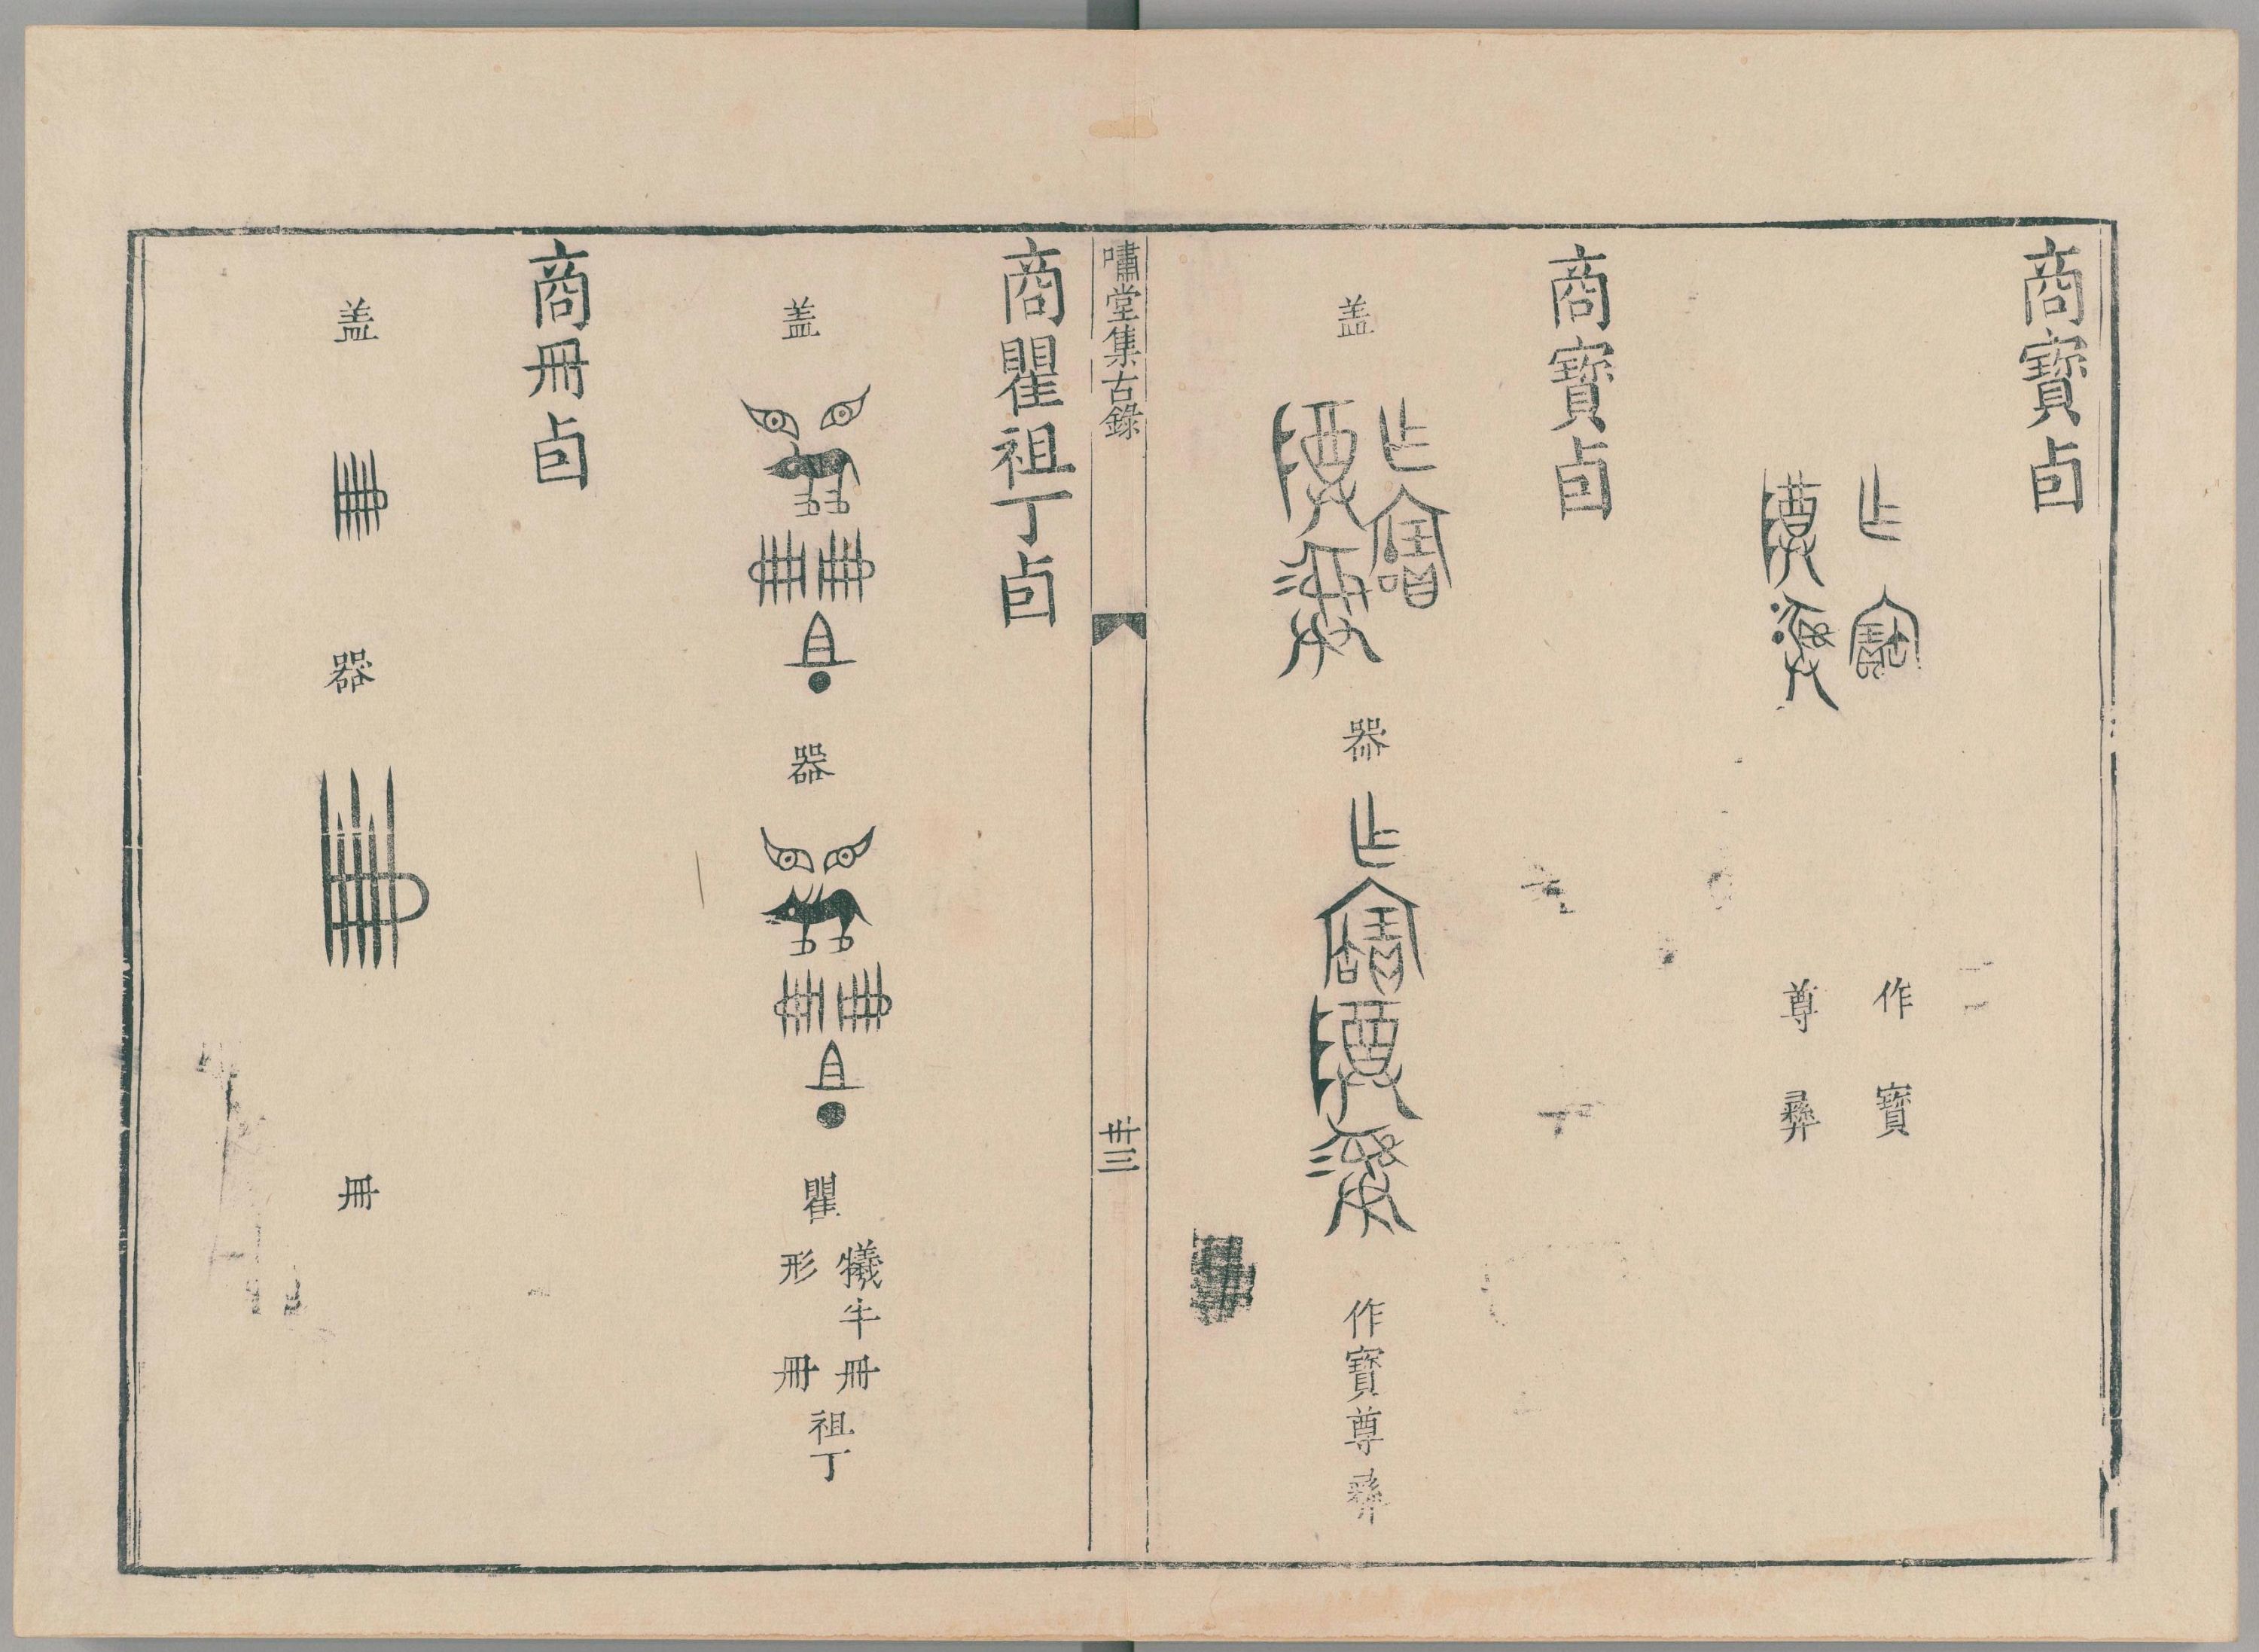 商寶卣
作寶
尊彝
商寶卣
盖
器
作寶尊彝
嘯堂集古錄
卅三
商瞿祖丁卣
盖
器
瞿
犧牛
形
冊
冊
祖丁
商冊卣
盖
器
冊